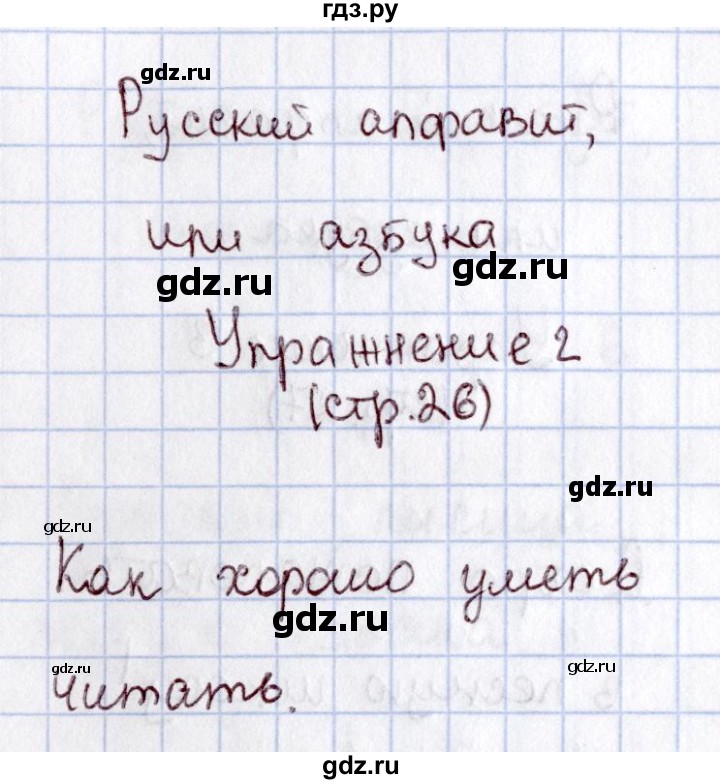 гдз.ру
gdz.ru
Русский алфавит,
или азбука
gdz.ru
gdz.ru
Упражнение 2
(стр.26)
gdz.ru
gdz.ru
Как хорошо уметь
gdz.ru
gdz.ru
gdz.ru
читать.
gdz.ru